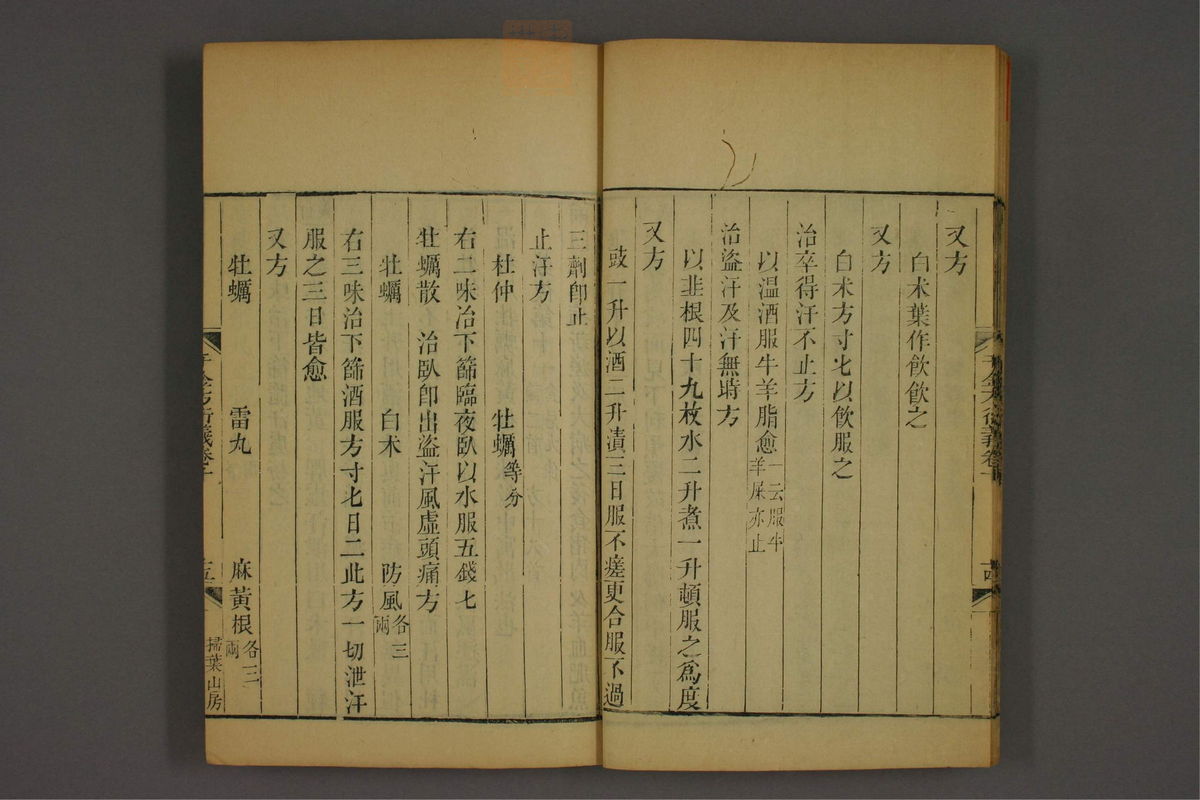 又方
白术葉作飲飲之
又方
白术方寸匕以飲服之
治卒得汗不止方
以温酒服牛羊脂愈一云服牛羊屎亦止
治盜汗及汗無時方
以韭根四十九枚水二升煮一升頓服之爲度
又方
豉一升以酒二升漬三日服不瘥更合服不過
三劑卽止
止汗方
杜仲 牡蠣等分
右二味冶下篩臨夜臥以水服五錢匕
牡蠣散 治臥卽出盜汗風虛頭痛方
牡蠣 白术 防風各三兩
右三味治下篩酒服方寸匕日二此方一切泄汗
服之三日皆愈
又方
牡蠣 雷丸 麻黃根各三兩
千金方衍義卷十 十五 掃葉山房